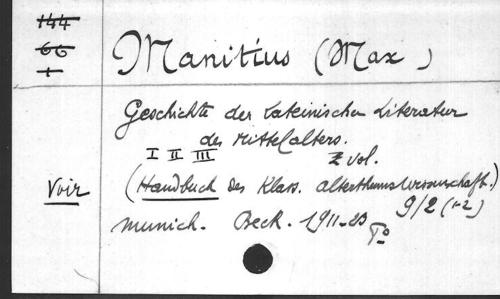 144
66
1
Manitius (Max)
Geschichte der lateinischen Literatur
des Mittelalters.
I II III vol.
Voir
(Handbuch des Klass. Alterthumswissenschaft.)
9/2 (1-2)
Munich. Beck. 1911-23